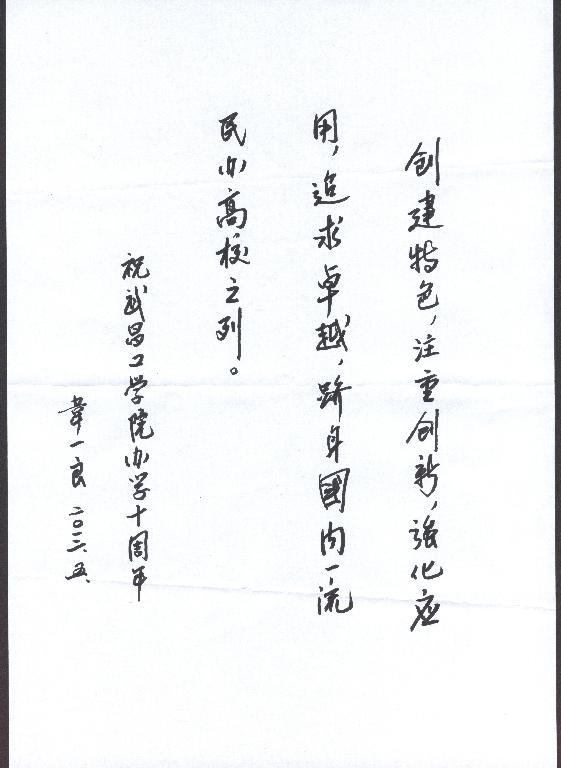 创建特色，注重创新，强化应
用，追求卓越，跻身國内一流
民办高校之列。
祝武昌工学院办学十周年
韋一良 二〇一三.五.